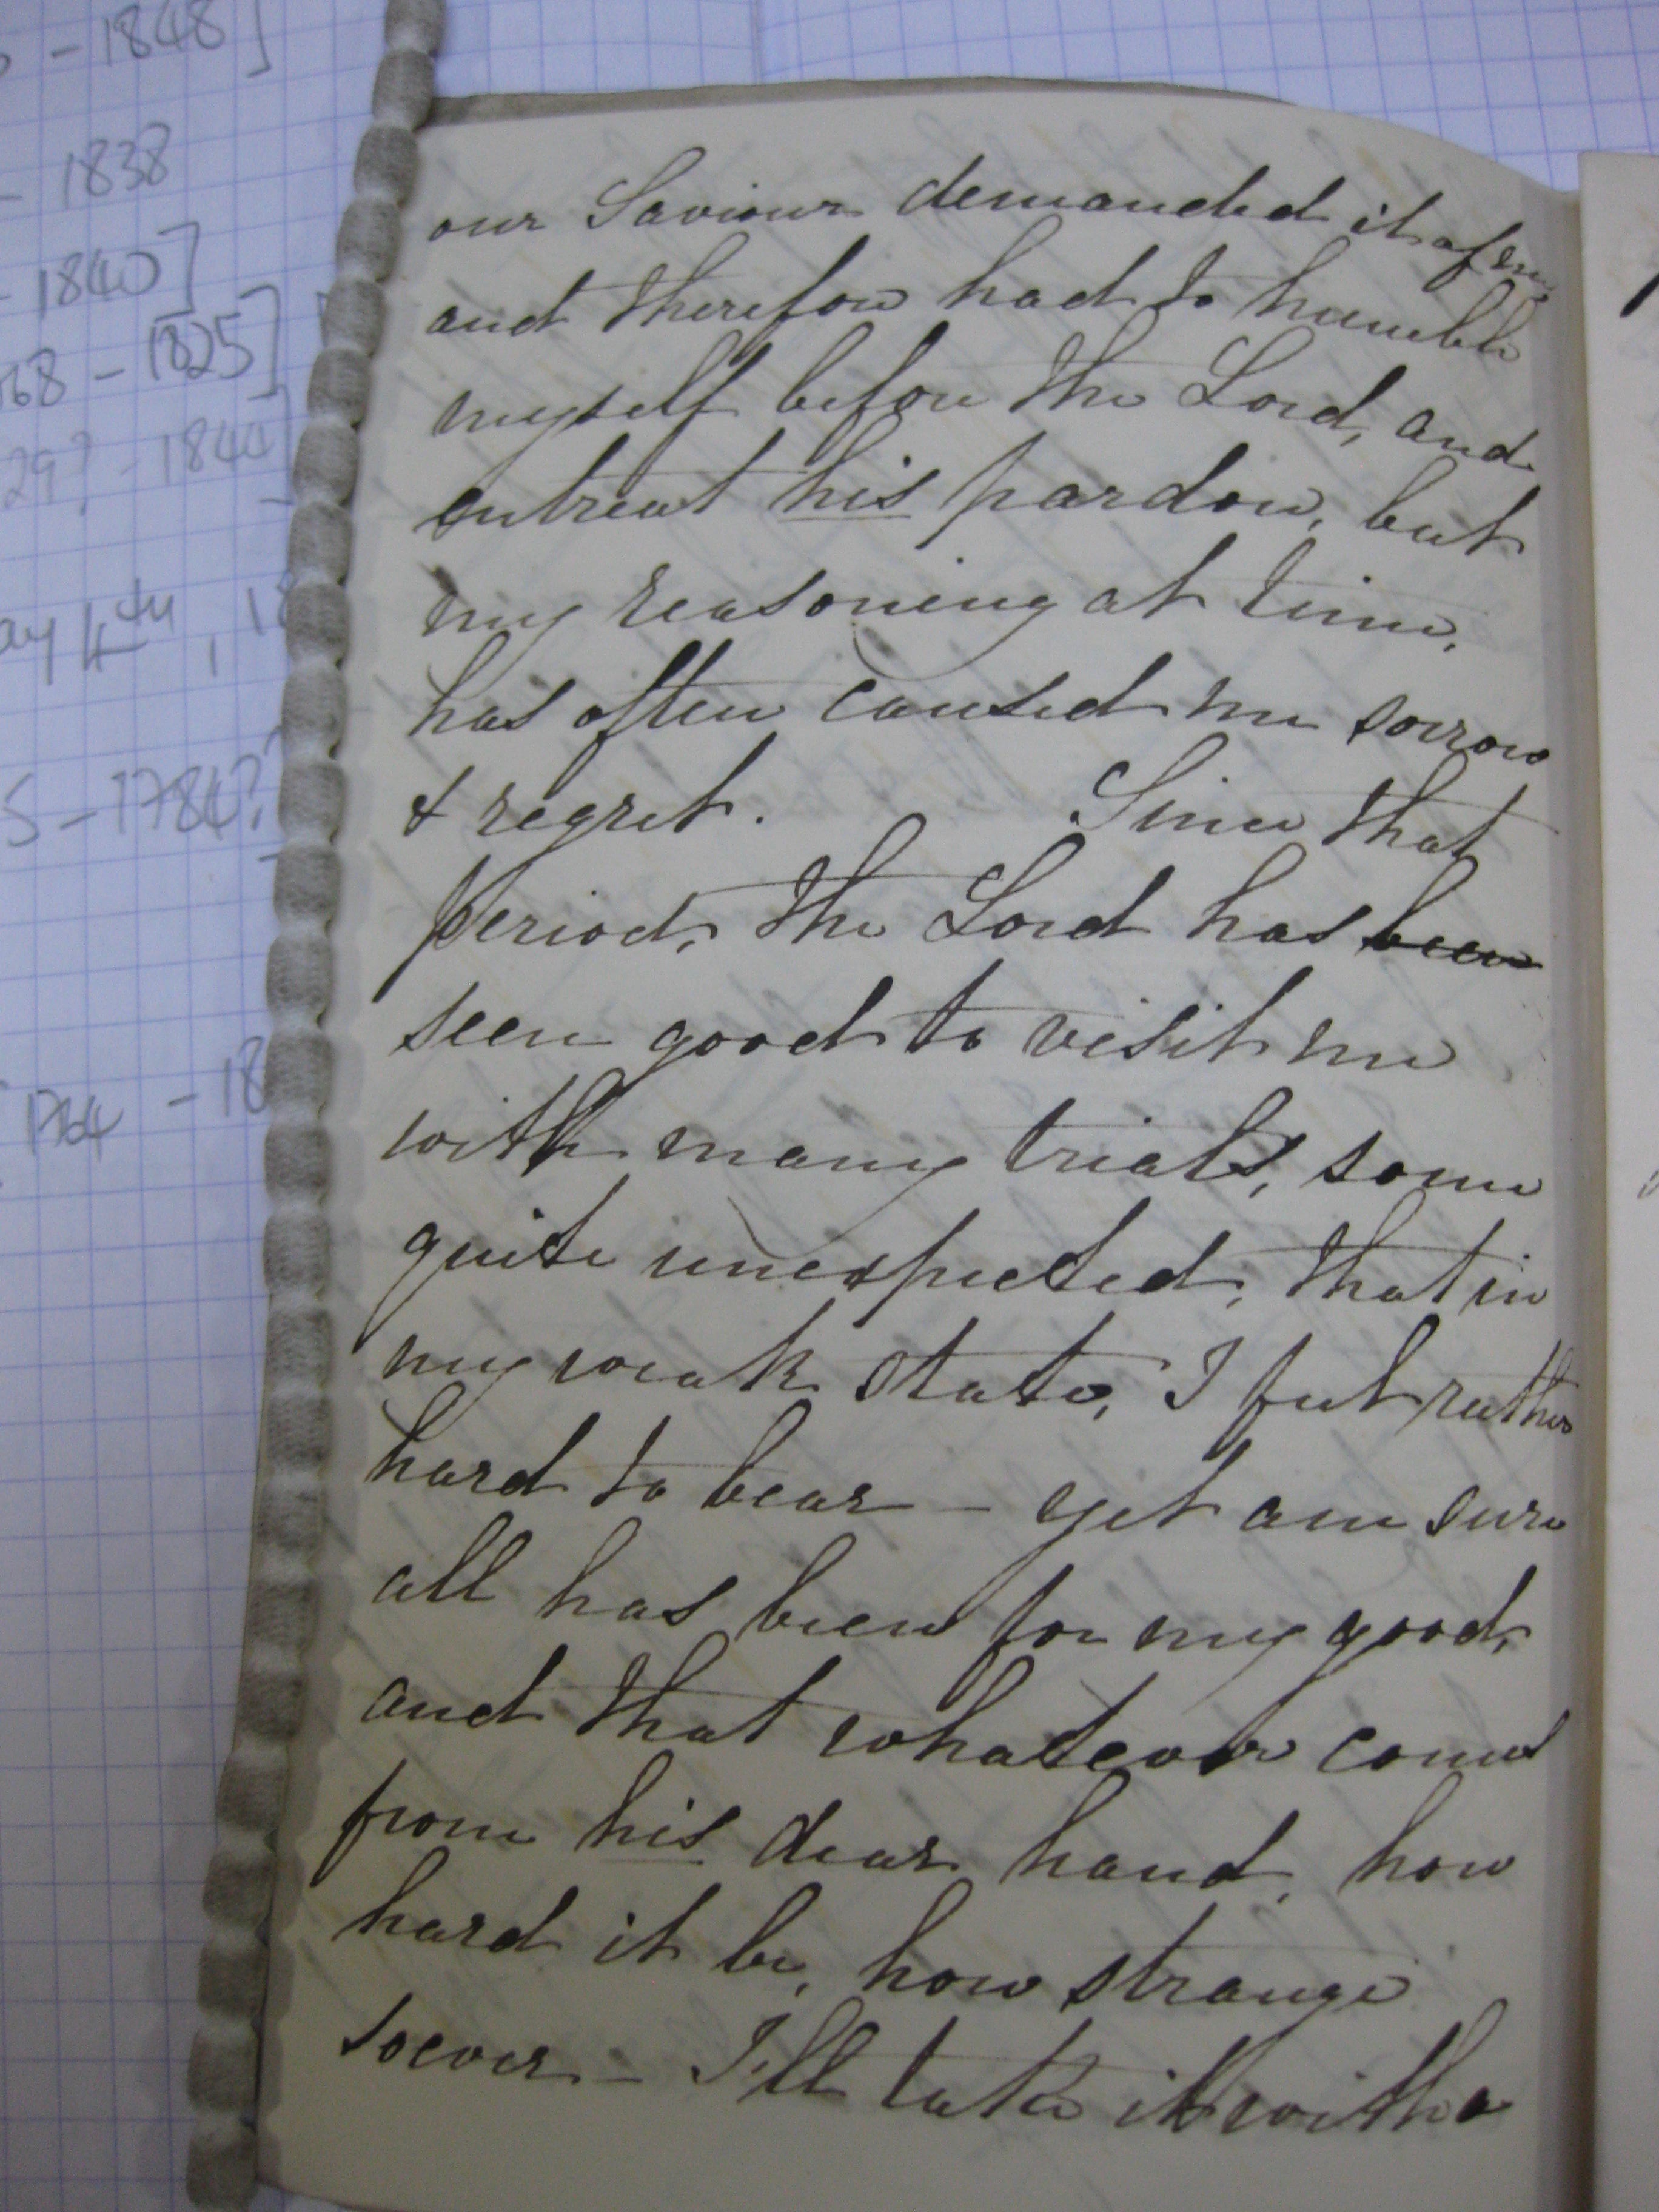 - 1848]
- 1838
- 1840]
68 - 1825]
29? - 1844
ay 4th, 18
5 - 1784?
1764 - 18
our Saviour demanded it of me,
and therefore had to humble
myself before the Lord, and
entreat his pardon, but
my reasoning at time,
has often caused me sorrow
& regret. Since that
period, the Lord has been
seen good to visit me
with many trials, some
quite unexpected, that in
my weak state, I felt rather
hard to bear – yet am sure
all has been for my good,
and that whatever comes
from his dear hand, how
hard it be, how strange
soever – I'll take it with a